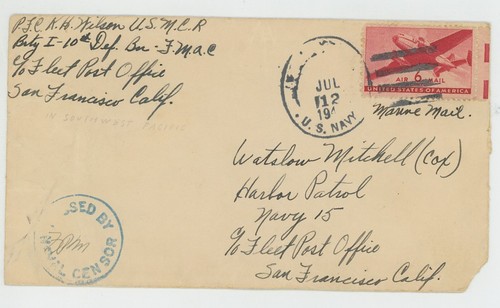 P.F.C. K.H. Wilson U.S.M.C.R
Bty I-10th Def. Bn - F.M.a.C
c/o Fleet Post Office
San Francisco Calif.
IN SOUTHWEST PACIFIC
JUL
12
194
U.S. NAVY
AIR 6¢ MAIL
UNITED STATES OF AMERICA
Marine Mail.
Watslow Mitchell (Cox)
Harbor Patrol
Navy 15
c/o Fleet Post Office
San Francisco Calif.
SSED BY
NAVAL CENSOR